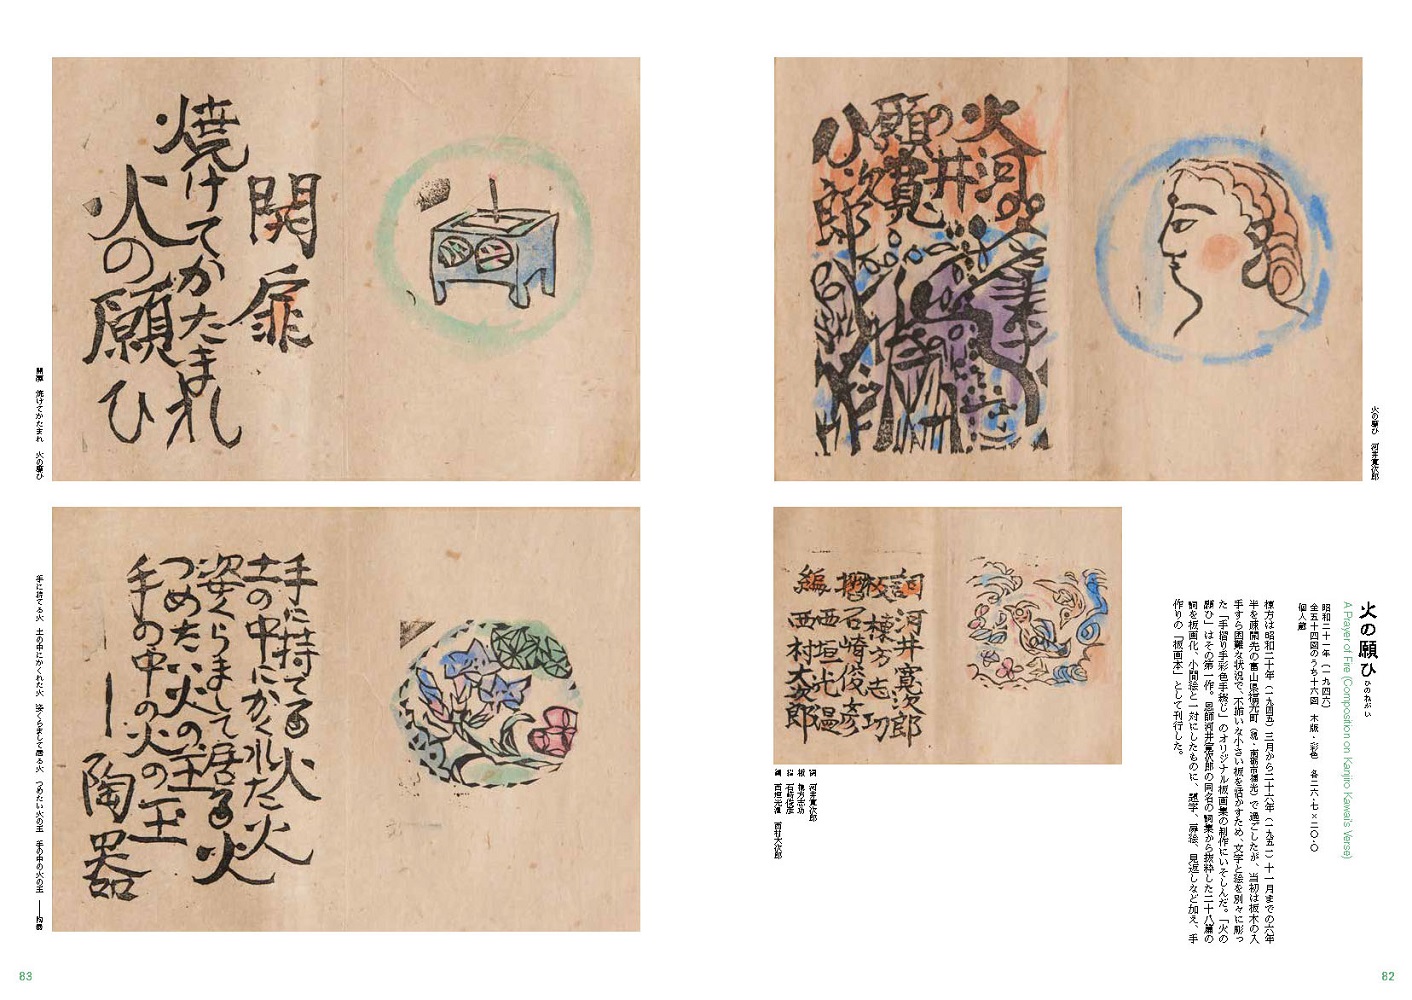 火の願ひ ひのねがい
A Prayer of Fire (Composition on Kanjiro Kawai's Verse)
昭和二十一年（一九四六）
全五十四図のうち十六図　木版・彩色　各二六・七×二〇・〇
個人蔵
棟方は昭和二十年（一九四五）三月から二十六年（一九五一）十一月までの六年
半を疎開先の富山県福光町（現・南砺市福光）で過ごしたが、当初は板木の入
手すら困難な状況で、不揃いな小さい板を活かすため、文字と絵を別々に彫っ
た「手摺り手彩色手綴じ」のオリジナル板画集の制作にいそしんだ。「火の
願ひ」はその第一作。恩師河井寛次郎の同名の詞集から抜粋した二十八篇の
詞を板画化、小間絵と一対にしたものに、題字、扉絵、見返しなど加え、手
作りの『板画本』として刊行した。
火の願ひ　河井寛次郎
火河
の井
願寛
ひ次郎
詞　河井寛次郎
板　棟方志功
摺　石崎俊彦
編　西垣光温
西村大次郎
詞　河井寛次郎
板　棟方志功
摺　石崎俊彦
編　西垣光温　西村大次郎
82
開扉
焼けてかたまれ
火の願ひ
開扉　焼けてかたまれ　火の願ひ
手に持てる火
土の中にかくれた火
姿くらまして居る火
つめたい火の玉
手の中の火の玉
―陶器
手に持てる火　土の中にかくれた火　姿くらまして居る火　つめたい火の玉　手の中の火の玉　――陶器
83